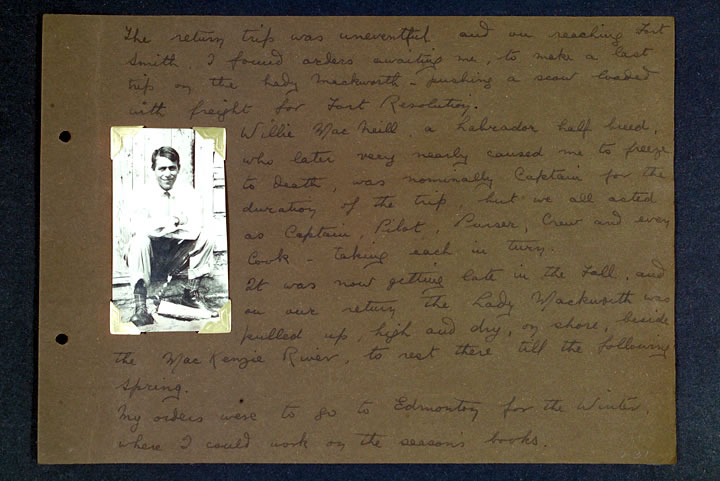 The return trip was uneventful and on reaching Fort
Smith, I found orders awaiting me, to make a last
trip on the Lady Mackworth - pushing a scow loaded
with freight for Fort Resolution.
Willie MacNeill, a Labrador half breed,
who later very nearly caused me to freeze
to death was nominally Captain for the
duration of the trip, but we all acted
as Captain, Pilot, Purser, Crew and even
Cook - taking each in turn.
It was now getting late in the Fall, and
on our return the Lady Mackworth was
pulled up, high and dry, on shore, beside
the MacKenzie River, to rest there till the following
spring.
My orders were to go to Edmonton for the Winter,
where I could work on the seasons books.